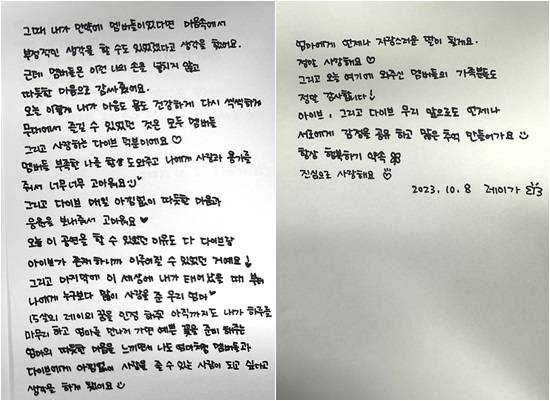 그때 내가 만약에 멤버들이였다면 마음속에서
부정적인 생각을 할 수도 있었겠다고 생각을 했어요.
근데 멤버들은 이런 나의 손을 놓치지 않고
따뜻한 마음으로 감싸줬어요.
오늘 이렇게 내가 마음도 몸도 건강하게 다시 씩씩하게
무대에서 즐길 수 있었던 것은 모두 멤버들
그리고 사랑하는 다이브 덕분이에요♡
멤버들 부족한 나를 항상 도와주고 나에게 사랑과 용기를
줘서 너무너무 고마워요
그리고 다이브 매일 아낌없이 따뜻한 마음과
응원을 보내줘서 고마워요♥
오늘 이 공연을 할 수 있었던 이유도 다 다이브랑
아이브가 존재하니까 이루어질 수 있었던 거예요!
그리고 마지막에 이 세상에 내가 태어났을 때 부터
나에게 누구보다 많이 사랑을 준 우리 엄마♥
15살의 레이의 꿈을 인정 해주고 아직까지도 내가 하루를
마무리 하고 엄마를 만나러 가면 예쁜 꽃을 준비 해주는
엄마의 따뜻한 마음을 느끼면서 나도 엄마처럼 멤버들과
다이브에게 아낌없이 사랑을 줄 수 있는 사람이 되고 싶다고
생각을 하게 됐어요
엄마에게 언제나 자랑스러운 딸이 될게요.
정말 사랑해요♡
그리고 오늘 여기에 와주신 멤버들의 가족분들도
정말 감사합니다!
아이브, 그리고 다이브 우리 앞으로도 언제나
서로에게 감정을 공유 하고 많은 추억 만들어가요
항상 행복하기 약속
진심으로 사랑해요
2023. 10. 8 레이가